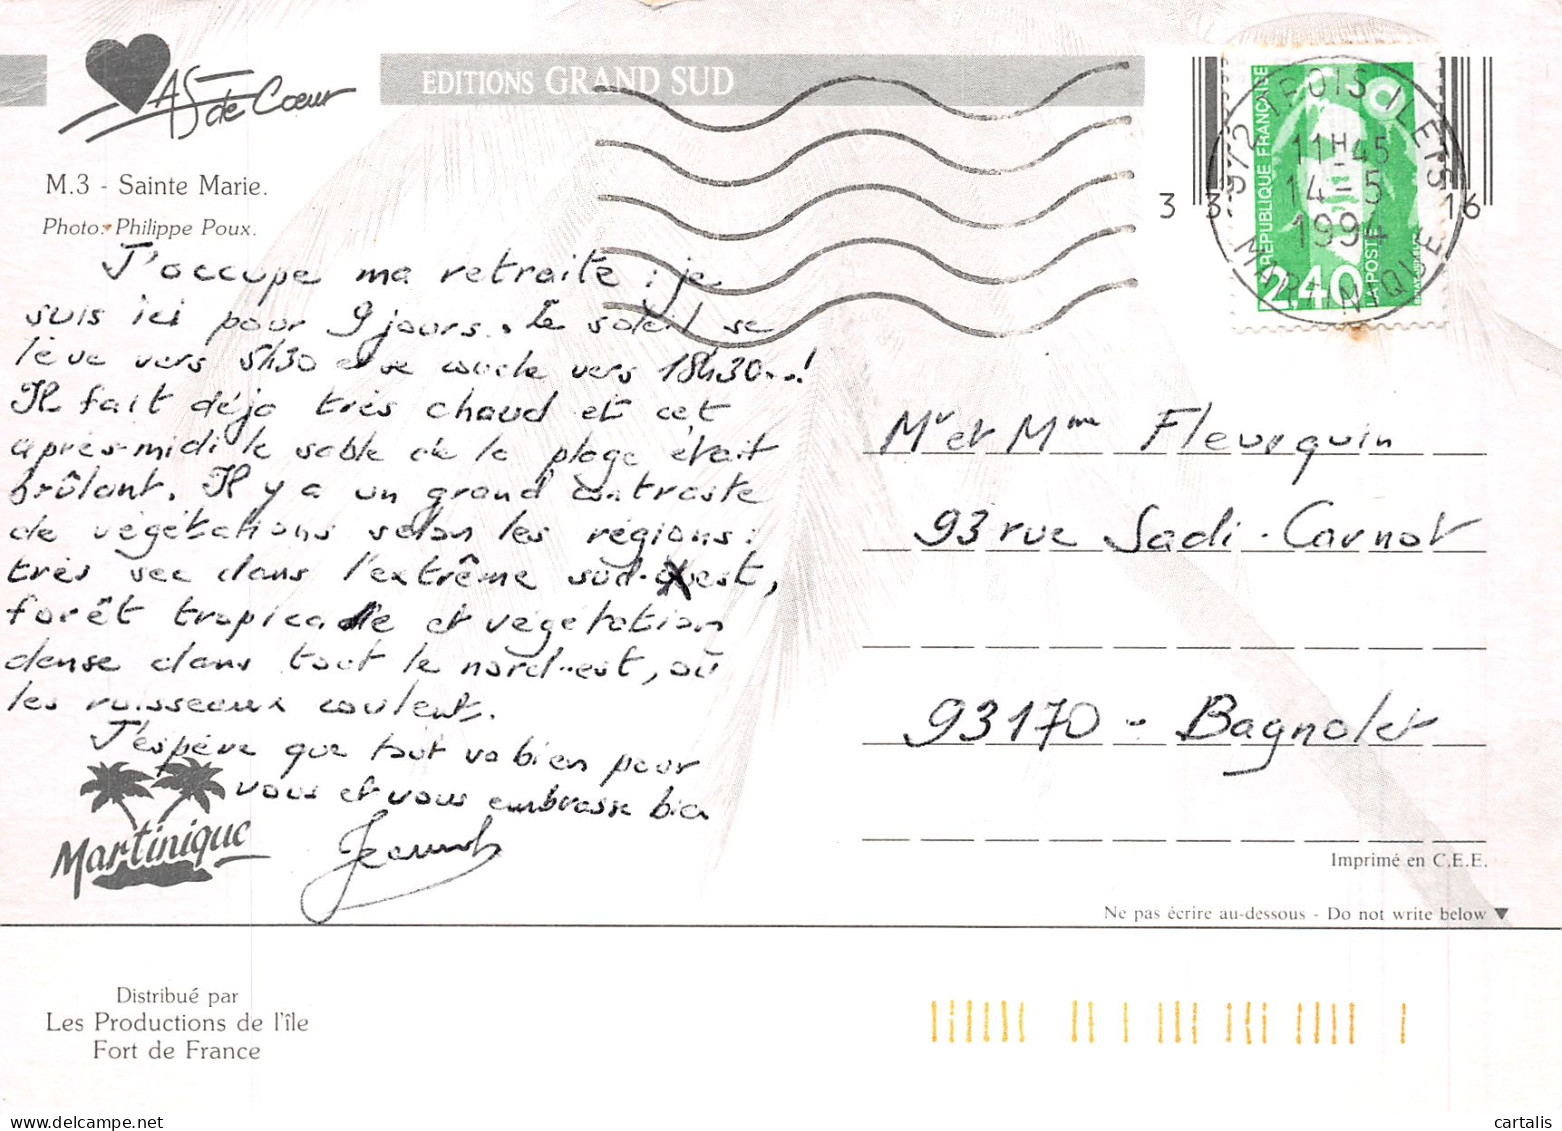 As de Cœur
EDITIONS GRAND SUD
M.3 - Sainte Marie.
Photo: Philippe Poux.
J'occupe ma retraite : je
suis ici pour 9 jours. Le soleil se
lève vers 5h30 et se couche vers 18h30...!
Il fait déjà très chaud et cet
après-midi le sable de la plage était
brûlant. Il y a un grand contraste
de végétations selon les régions :
très sec dans l'extrême sud-est,
forêt tropicale et végétation
dense dans tout le nord-est, où
les ruisseaux coulent.
J'espère que tout va bien pour
vous et vous embrasse bien
Martinique
REPUBLIQUE FRANÇAISE
2,40
LA POSTE
972 TROIS ILETS
11H45
14-5
1994
MARTINIQUE
3 3
16
Mr et Mme Fleurquin
93 rue Sadi-Carnot
93170 - Bagnolet
Imprimé en C.E.E.
Ne pas écrire au-dessous - Do not write below ▼
Distribué par
Les Productions de l'île
Fort de France
cartalis